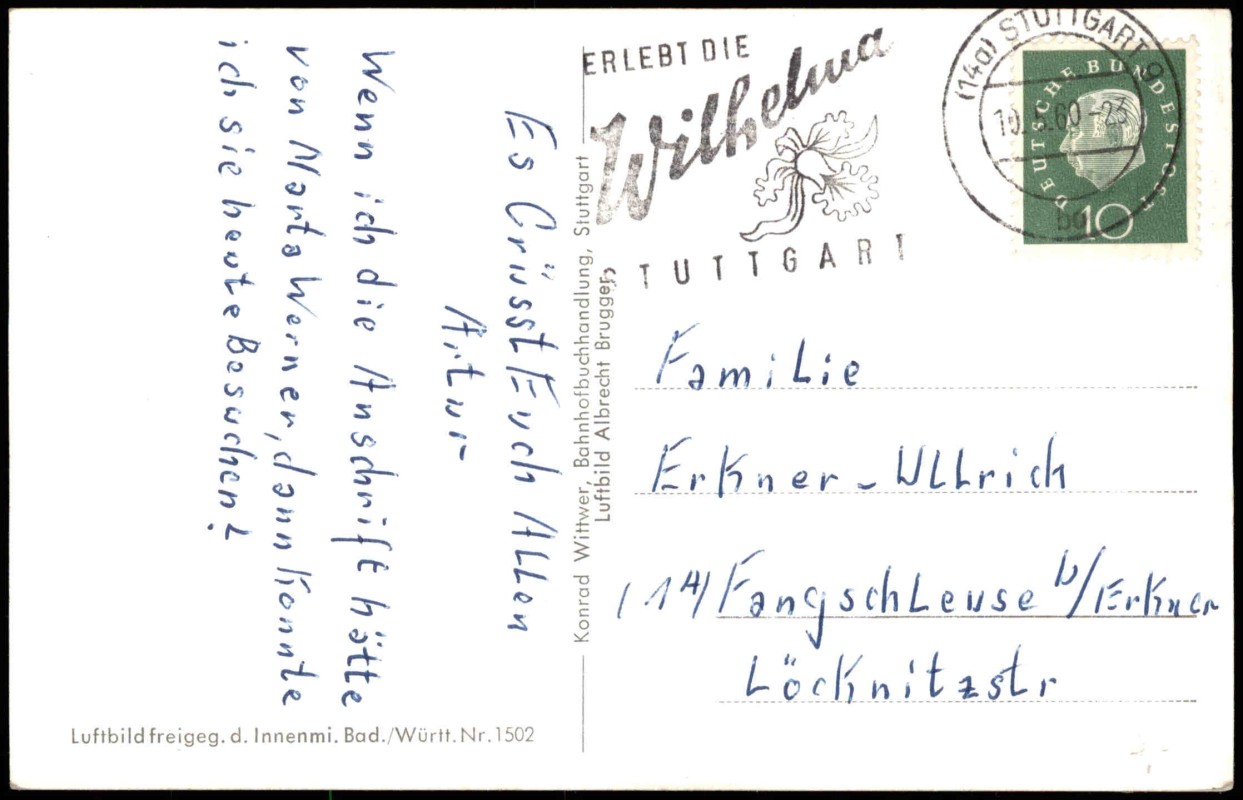 ERLEBT DIE
Wilhelma
STUTTGART
(14a) STUTTGART 9
10.5.60-23
bo
DEUTSCHE BUNDESPOST
10
Es Grüsst Euch Allen
Artur
Wenn ich die Anschrift hätte
Werner, dann konnte
ich sie heute Besuchen!
Konrad Wittwer, Bahnhofbuchhandlung, Stuttgart
Luftbild Albrecht Brugger,
Familie
Erkner-Ullrich
(1A) Fangschleuse b/Erkner
Löcknitzstr
Luftbild freigeg. d. Innenmi. Bad./Württ. Nr. 1502